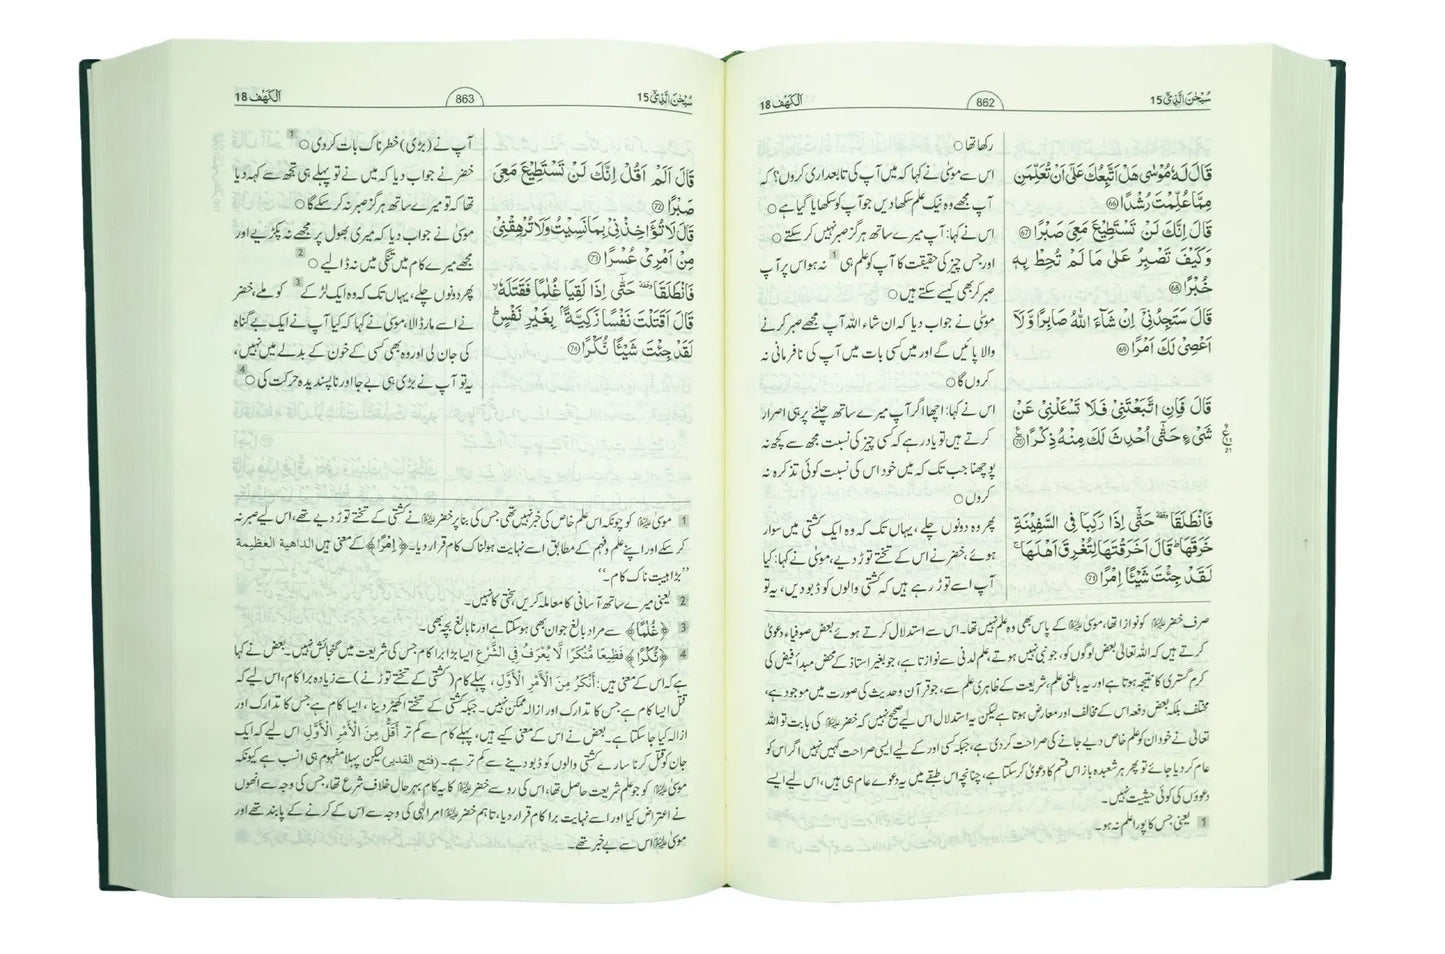 سُبْحٰنَ الَّذِيْٓ 15
862
اَلْكَهْف 18
قَالَ لَهٗ مُوْسٰى هَلْ اَتَّبِعُكَ عَلٰٓى اَنْ تُعَلِّمَنِ
مِمَّا عُلِّمْتَ رُشْدًا ﴿66﴾
قَالَ اِنَّكَ لَنْ تَسْتَطِيْعَ مَعِيَ صَبْرًا ﴿67﴾
وَكَيْفَ تَصْبِرُ عَلٰى مَا لَمْ تُحِطْ بِهٖ
خُبْرًا ﴿68﴾
قَالَ سَتَجِدُنِيْٓ اِنْ شَآءَ اللّٰهُ صَابِرًا وَّلَآ
اَعْصِيْ لَكَ اَمْرًا ﴿69﴾
قَالَ فَاِنِ اتَّبَعْتَنِيْ فَلَا تَسْـَٔلْنِيْ عَنْ
شَيْءٍ حَتّٰٓى اُحْدِثَ لَكَ مِنْهُ ذِكْرًا ﴿70﴾
ع
21
فَانْطَلَقَا ۥ حَتّٰٓى اِذَا رَكِبَا فِي السَّفِيْنَةِ
خَرَقَهَا ؕ قَالَ اَخَرَقْتَهَا لِتُغْرِقَ اَهْلَهَا ۚ
لَقَدْ جِئْتَ شَيْـًٔا اِمْرًا ﴿71﴾
رکھا تھا ○
اس سے موسیٰ نے کہا کہ میں آپ کی تابعداری کروں؟ کہ
آپ مجھے وہ نیک علم سکھا دیں جو آپ کو سکھایا گیا ہے ○
اس نے کہا: آپ میرے ساتھ ہرگز صبر نہیں کر سکتے ○
اور جس چیز کی حقیقت کا آپ کو علم ہی 1 نہ ہو اس پر آپ
صبر کر بھی کیسے سکتے ہیں ○
موسیٰ نے جواب دیا کہ ان شاء اللہ آپ مجھے صبر کرنے
والا پائیں گے اور میں کسی بات میں آپ کی نافرمانی نہ
کروں گا ○
اس نے کہا: اچھا اگر آپ میرے ساتھ چلنے پر ہی اصرار
کرتے ہیں تو یاد رہے کہ کسی چیز کی نسبت مجھ سے کچھ نہ
پوچھنا جب تک کہ میں خود اس کی نسبت کوئی تذکرہ نہ
کروں ○
پھر وہ دونوں چلے، یہاں تک کہ وہ ایک کشتی میں سوار
ہوئے، خضر نے اس کے تختے توڑ دیے، موسیٰ نے کہا: کیا
آپ اسے توڑ رہے ہیں کہ کشتی والوں کو ڈبو دیں، یہ تو
صرف خضر علیہ السلام کو نوازا تھا، موسیٰ علیہ السلام کے پاس بھی وہ علم نہیں تھا۔ اس سے استدلال کرتے ہوئے بعض صوفیاء دعویٰ
کرتے ہیں کہ اللہ تعالیٰ بعض لوگوں کو، جو نبی نہیں ہوتے، علم لدنی سے نوازتا ہے، جو بغیر استاذ کے محض مبدأ فیض کی
کرم گستری کا نتیجہ ہوتا ہے اور یہ باطنی علم، شریعت کے ظاہری علم سے، جو قرآن و حدیث کی صورت میں موجود ہے،
مختلف بلکہ بعض دفعہ اس کے مخالف اور معارض ہوتا ہے لیکن یہ استدلال اس لیے صحیح نہیں کہ خضر علیہ السلام کی بابت تو اللہ
تعالیٰ نے خود ان کو علم خاص دیے جانے کی صراحت کر دی ہے، جبکہ کسی اور کے لیے ایسی صراحت کہیں نہیں اگر اس کو
عام کر دیا جائے تو پھر ہر شعبدہ باز اس قسم کا دعویٰ کر سکتا ہے، چنانچہ اس طبقے میں یہ دعوے عام ہی ہیں، اس لیے ایسے
دعووں کی کوئی حیثیت نہیں۔
1 یعنی جس کا پورا علم نہ ہو۔
سُبْحٰنَ الَّذِيْٓ 15
863
اَلْكَهْف 18
قَالَ اَلَمْ اَقُلْ اِنَّكَ لَنْ تَسْتَطِيْعَ مَعِيَ
صَبْرًا ﴿72﴾
قَالَ لَا تُؤَاخِذْنِيْ بِمَا نَسِيْتُ وَلَا تُرْهِقْنِيْ
مِنْ اَمْرِيْ عُسْرًا ﴿73﴾
فَانْطَلَقَا ۥ حَتّٰٓى اِذَا لَقِيَا غُلٰمًا فَقَتَلَهٗ ۙ
قَالَ اَقَتَلْتَ نَفْسًا زَكِيَّةًۢ بِغَيْرِ نَفْسٍ ؕ
لَقَدْ جِئْتَ شَيْـًٔا نُّكْرًا ﴿74﴾
آپ نے (بڑی) خطرناک بات کر دی ○ 1
خضر نے جواب دیا کہ میں نے تو پہلے ہی تجھ سے کہہ دیا
تھا کہ تو میرے ساتھ ہرگز صبر نہ کر سکے گا ○
موسیٰ نے جواب دیا کہ میری بھول پر مجھے نہ پکڑیے اور
مجھے میرے کام میں تنگی میں نہ ڈالیے ○ 2
پھر دونوں چلے، یہاں تک کہ وہ ایک لڑکے 3 کو ملے، خضر
نے اسے مار ڈالا، موسیٰ نے کہا کہ کیا آپ نے ایک بے گناہ
کی جان لی اور وہ بھی کسی کے خون کے بدلے میں نہیں،
یہ تو آپ نے بڑی ہی بے جا اور ناپسندیدہ حرکت کی ○ 4
1 موسیٰ علیہ السلام کو چونکہ اس علم خاص کی خبر نہیں تھی جس کی بنا پر خضر علیہ السلام نے کشتی کے تختے توڑ دیے تھے، اس لیے صبر نہ
کر سکے اور اپنے علم و فہم کے مطابق اسے نہایت ہولناک کام قرار دیا۔ ﴿اِمْرًا﴾ کے معنی ہیں الداهية العظيمة
”بڑا ہیبت ناک کام۔“
2 یعنی میرے ساتھ آسانی کا معاملہ کریں، سختی کا نہیں۔
3 ﴿غُلٰمًا﴾ سے مراد بالغ جوان بھی ہو سکتا ہے اور نابالغ بچہ بھی۔
4 ﴿نُّكْرًا﴾ فَظِيعًا مُنْكَرًا لَا يُعْرَفُ فِي الشَّرْعِ ایسا بڑا برا کام جس کی شریعت میں گنجائش نہیں۔ بعض نے کہا
ہے کہ اس کے معنی ہیں: أَنْكَرُ مِنَ الْأَمْرِ الْأَوَّلِ، پہلے کام (کشتی کے تختے توڑنے) سے زیادہ برا کام، اس لیے کہ
قتل ایسا کام ہے جس کا تدارک اور ازالہ ممکن نہیں۔ جبکہ کشتی کے تختے اکھیڑ دینا، ایسا کام ہے جس کا تدارک اور
ازالہ کیا جا سکتا ہے۔ بعض نے اس کے معنی کیے ہیں، پہلے کام سے کم تر أَقَلُّ مِنَ الْأَمْرِ الْأَوَّلِ اس لیے کہ ایک
جان کو قتل کرنا سارے کشتی والوں کو ڈبو دینے سے کم تر ہے۔ (فتح القدير) لیکن پہلا مفہوم ہی انسب ہے کیونکہ
موسیٰ علیہ السلام کو جو علم شریعت حاصل تھا، اس کی رو سے خضر علیہ السلام کا یہ کام بہرحال خلاف شرع تھا، جس کی وجہ سے انھوں
نے اعتراض کیا اور اسے نہایت برا کام قرار دیا، تاہم خضر علیہ السلام امر الٰہی کی وجہ سے اس کے کرنے کے پابند تھے اور
موسیٰ علیہ السلام اس سے بے خبر تھے۔